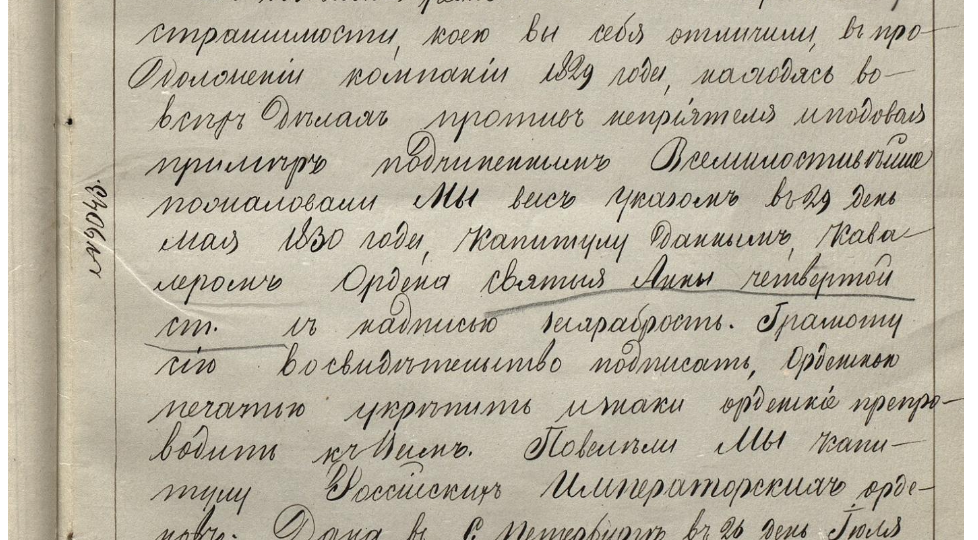 страшимости, коею вы себя отличили, въ про-
должении компаніи 1829 годы, находясь во-
всехъ Дѣлахъ противъ непріятеля и подовая
примѣръ подчиненнымъ Всемилостивѣйше
пожаловали Мы васъ указомъ въ 29 день
мая 1830 годы, Капитулу Даннымъ, Кава-
леромъ Ордена Святыя Анны четвертой
ст. съ надписью захрабрость. Грамоту
сію во свидѣтельство подписать, Орденскою
печатью укрѣпить и знаки орденскіе препро-
водить къ Вамъ. Повелѣли Мы Капи-
тулу Россійскихъ Императорскихъ орде-
новъ. Дана въ С. Петербургѣ въ 26 день Іюля
№6043.